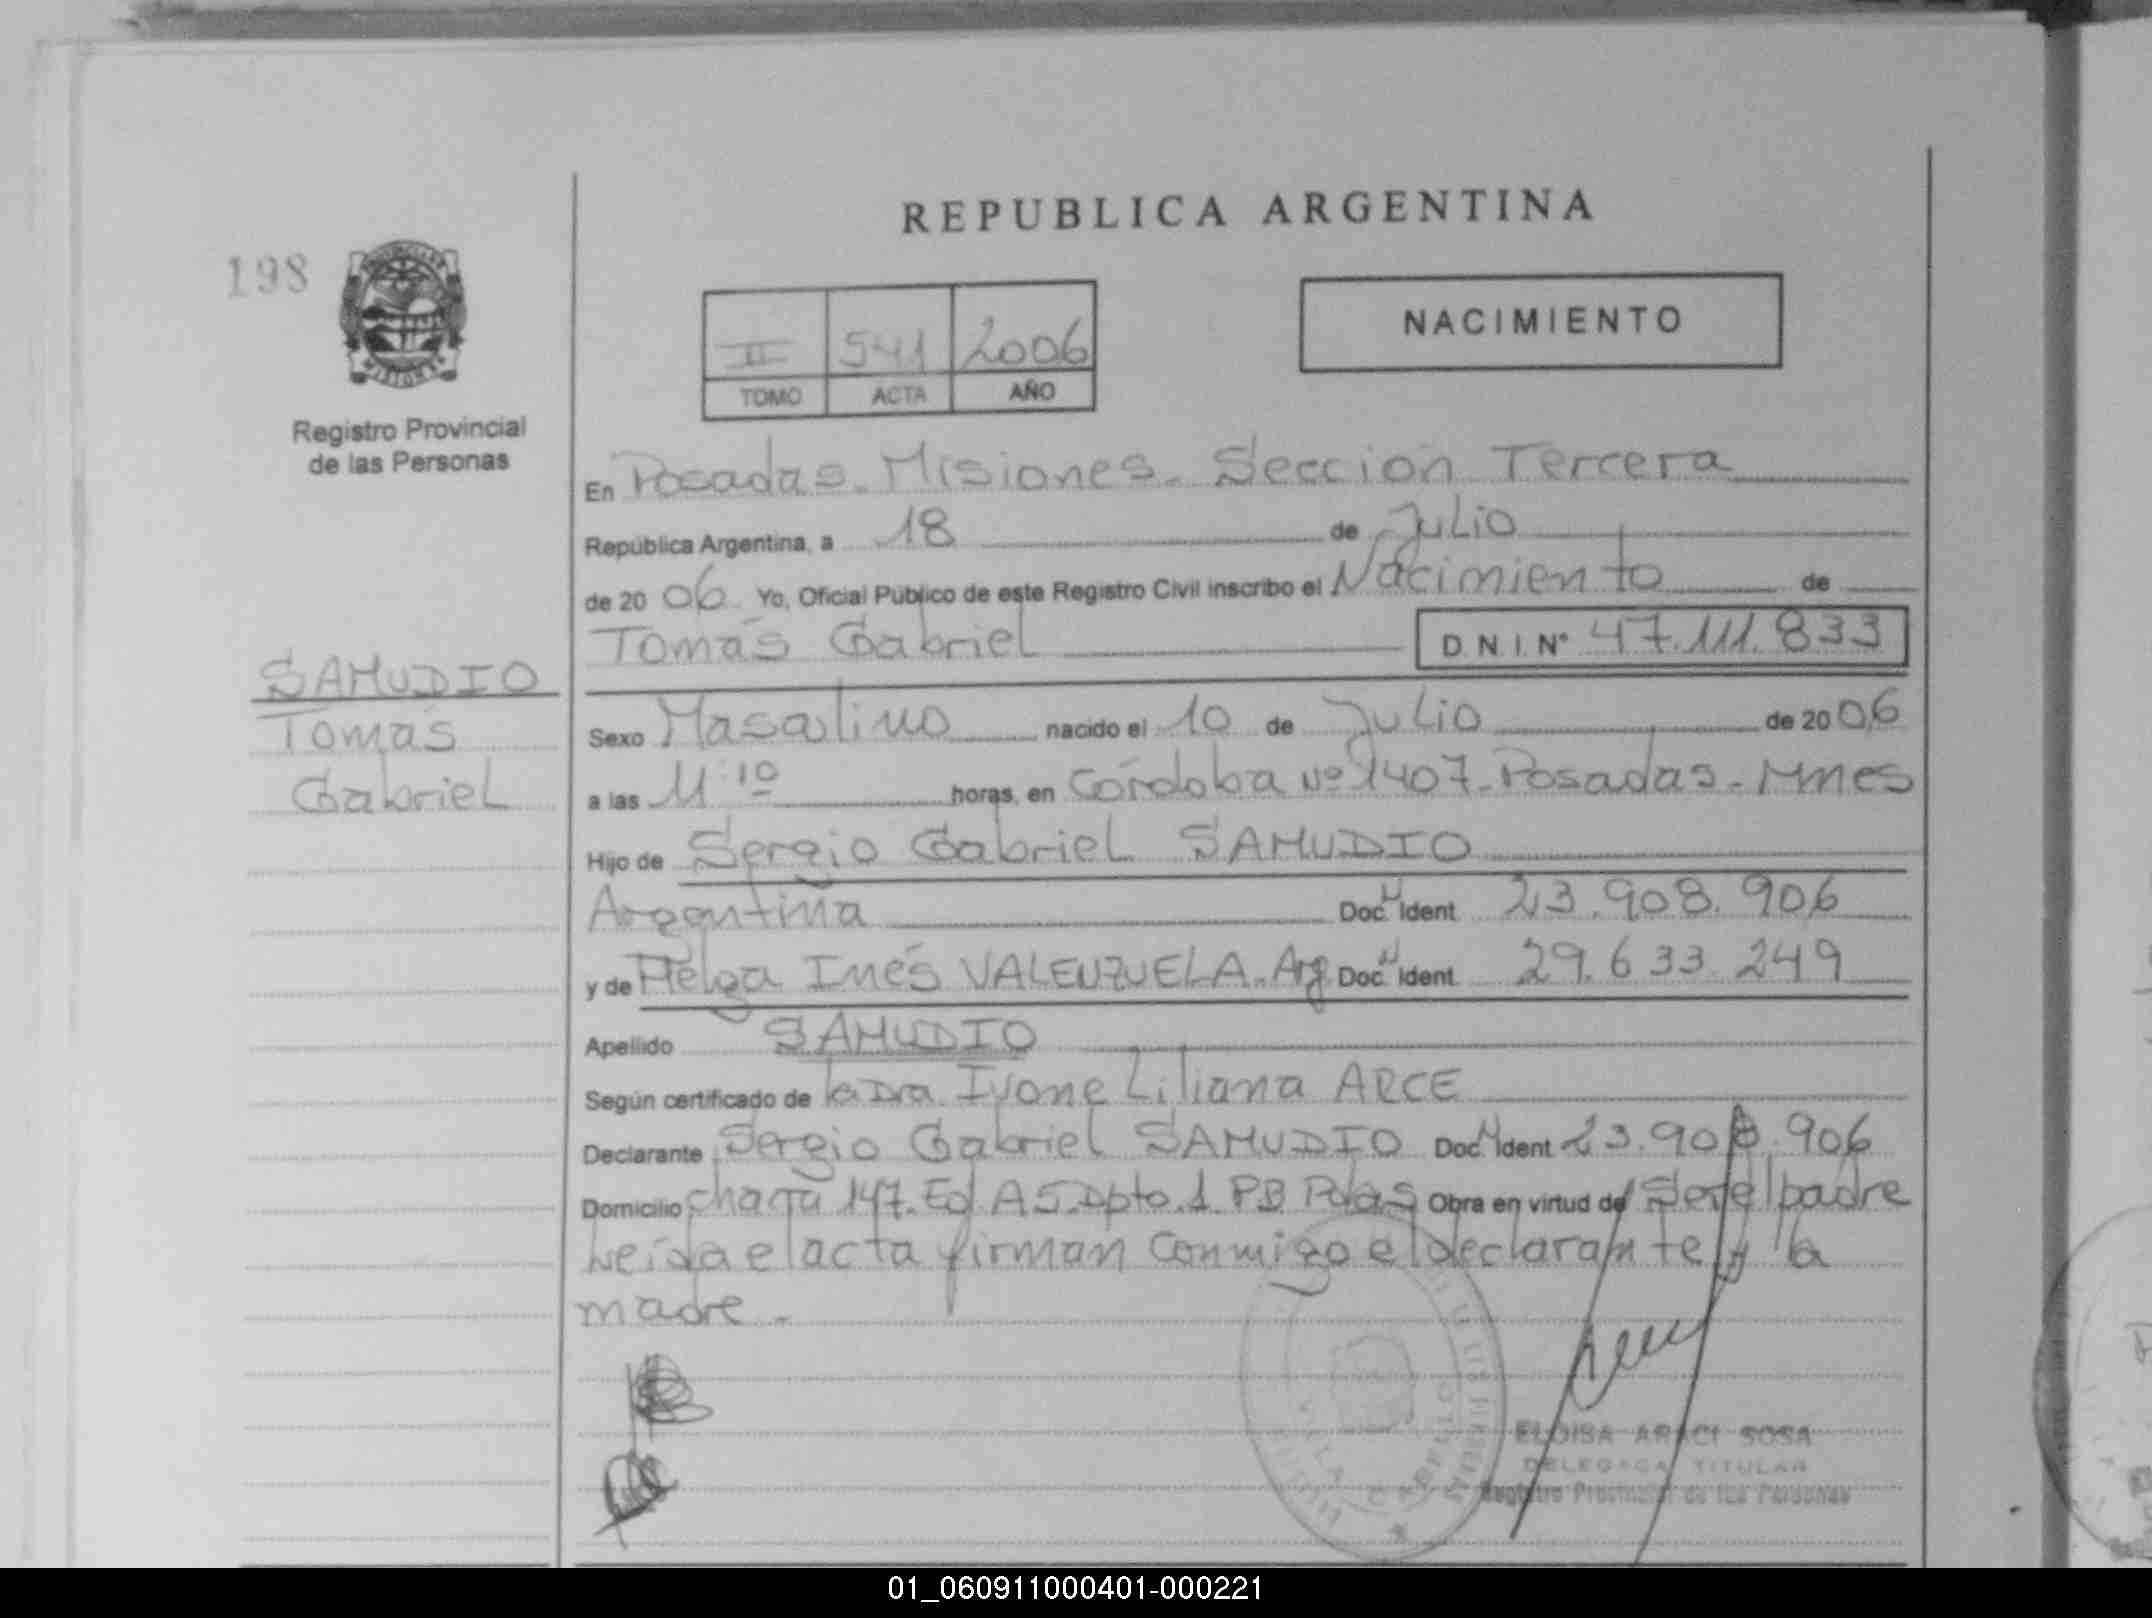 REPUBLICA ARGENTINA
198
PROVINCIA DE
MISIONES
Registro Provincial
de las Personas
II 541 2006
TOMO ACTA AÑO
NACIMIENTO
En Posadas - Misiones - Sección Tercera
República Argentina, a 18 de Julio
de 2006 Yo, Oficial Público de este Registro Civil inscribo el Nacimiento de
Tomás Gabriel D.N.I. Nº 47.111.833
SAMUDIO
Tomás
Gabriel
Sexo Masculino nacido el 10 de Julio de 2006
a las 11:10 horas, en Córdoba Nº 1407 - Posadas - Mnes
Hijo de Sergio Gabriel SAMUDIO
Argentina Doc. Ident 23.908.906
y de Helga Inés VALENZUELA - Arg Doc. Ident 29.633.249
Apellido SAMUDIO
Según certificado de la Dra. Ivone Liliana ARCE
Declarante Sergio Gabriel SAMUDIO Doc. Ident 23.908.906
Domicilio 147. Ed. A5 Dpto. 1 PB Pdas Obra en virtud de Ser el padre
Leída el acta firman conmigo el declarante y la
madre -
ELOISA ARACI SOSA
DELEGADA TITULAR
Registro Provincial de las Personas
01_060911000401-000221